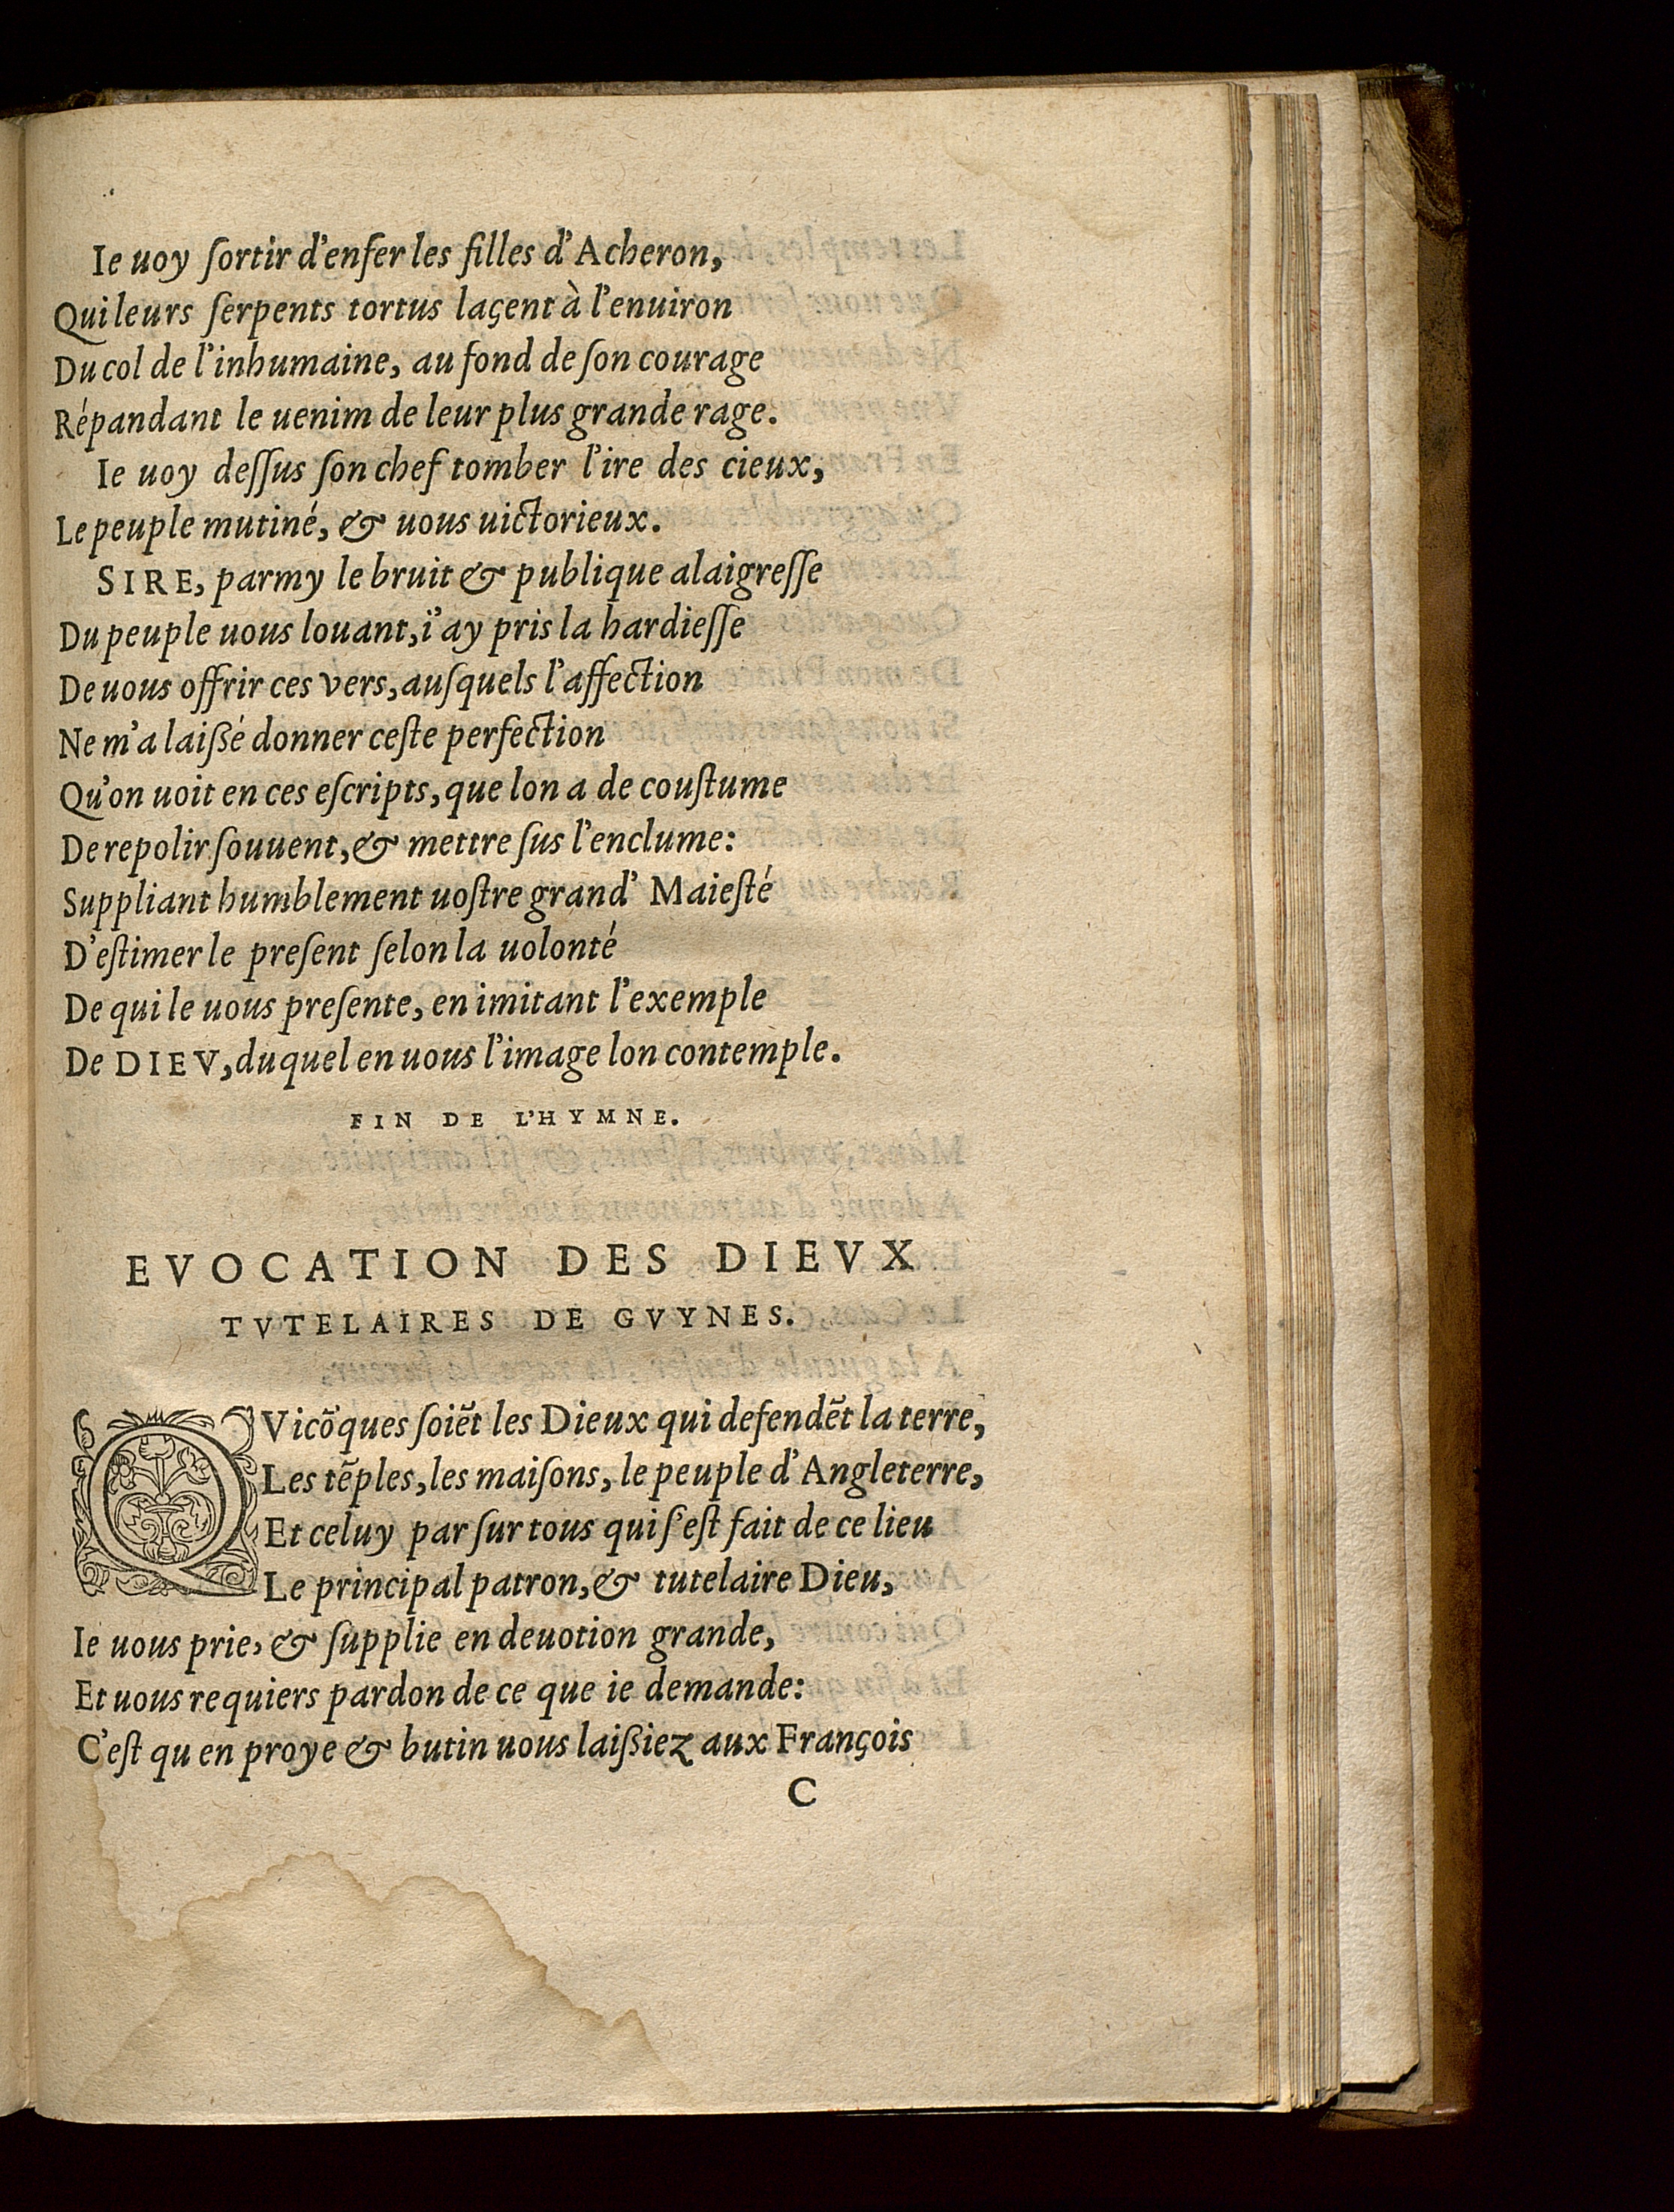 Ie uoy ſortir d'enfer les filles d'Acheron,
Qui leurs ſerpents tortus laçent à l'enuiron
Du col de l'inhumaine, au fond de ſon courage
Répandant le uenim de leur plus grande rage.
Ie uoy deſſus ſon chef tomber l'ire des cieux,
Le peuple mutiné, & uous uictorieux.
SIRE, parmy le bruit & publique alaigreſſe
Du peuple uous louant, i'ay pris la hardieſſe
De uous offrir ces vers, auſquels l'affection
Ne m'a laißé donner ceſte perfection
Qu'on uoit en ces eſcripts, que lon a de couſtume
De repolir ſouuent, & mettre ſus l'enclume:
Suppliant humblement uoſtre grand' Maieſté
D'eſtimer le preſent ſelon la uolonté
De qui le uous preſente, en imitant l'exemple
De DIEV, duquel en uous l'image lon contemple.
FIN DE L'HYMNE.
EVOCATION DES DIEVX
TVTELAIRES DE GVYNES.
QVicõques ſoiẽt les Dieux qui defendẽt la terre,
Les tẽples, les maiſons, le peuple d'Angleterre,
Et celuy par ſur tous qui ſ'eſt fait de ce lieu
Le principal patron, & tutelaire Dieu,
Ie uous prie, & ſupplie en deuotion grande,
Et uous requiers pardon de ce que ie demande:
C'eſt qu'en proye & butin uous laißiez aux François
C